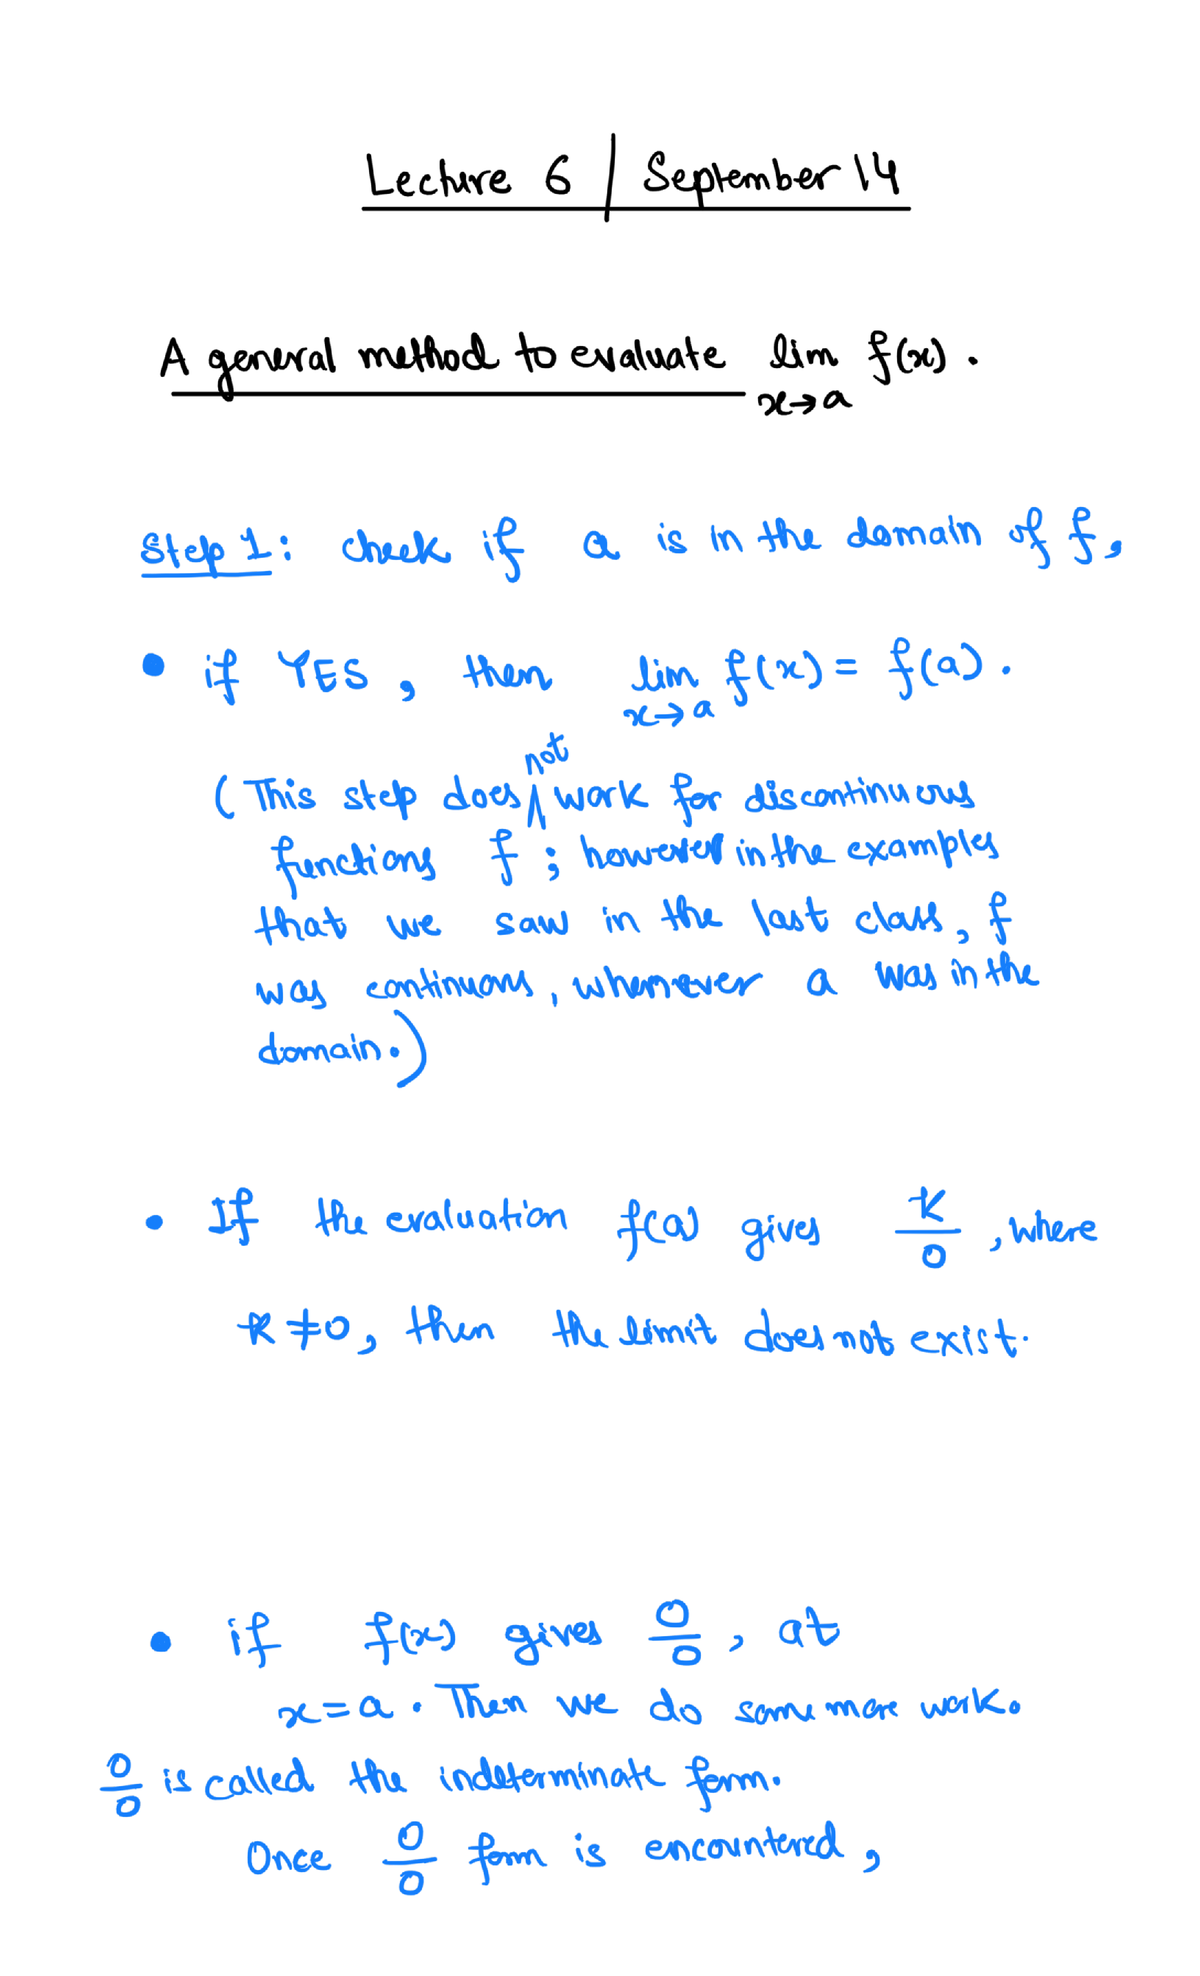 Lecture 6 / September 14
A general method to evaluate lim f(x).
x→a
Step 1: check if a is in the domain of f,
• if YES, then lim f(x) = f(a).
x→a
not
(This step does ∧ work for discontinuous
functions f; however in the examples
that we saw in the last class, f
was continuous, whenever a was in the
domain.)
• If the evaluation f(a) gives k/0, where
k ≠ 0, then the limit does not exist.
• if f(x) gives 0/0, at
x = a. Then we do some more work.
0/0 is called the indeterminate form.
Once 0/0 form is encountered,